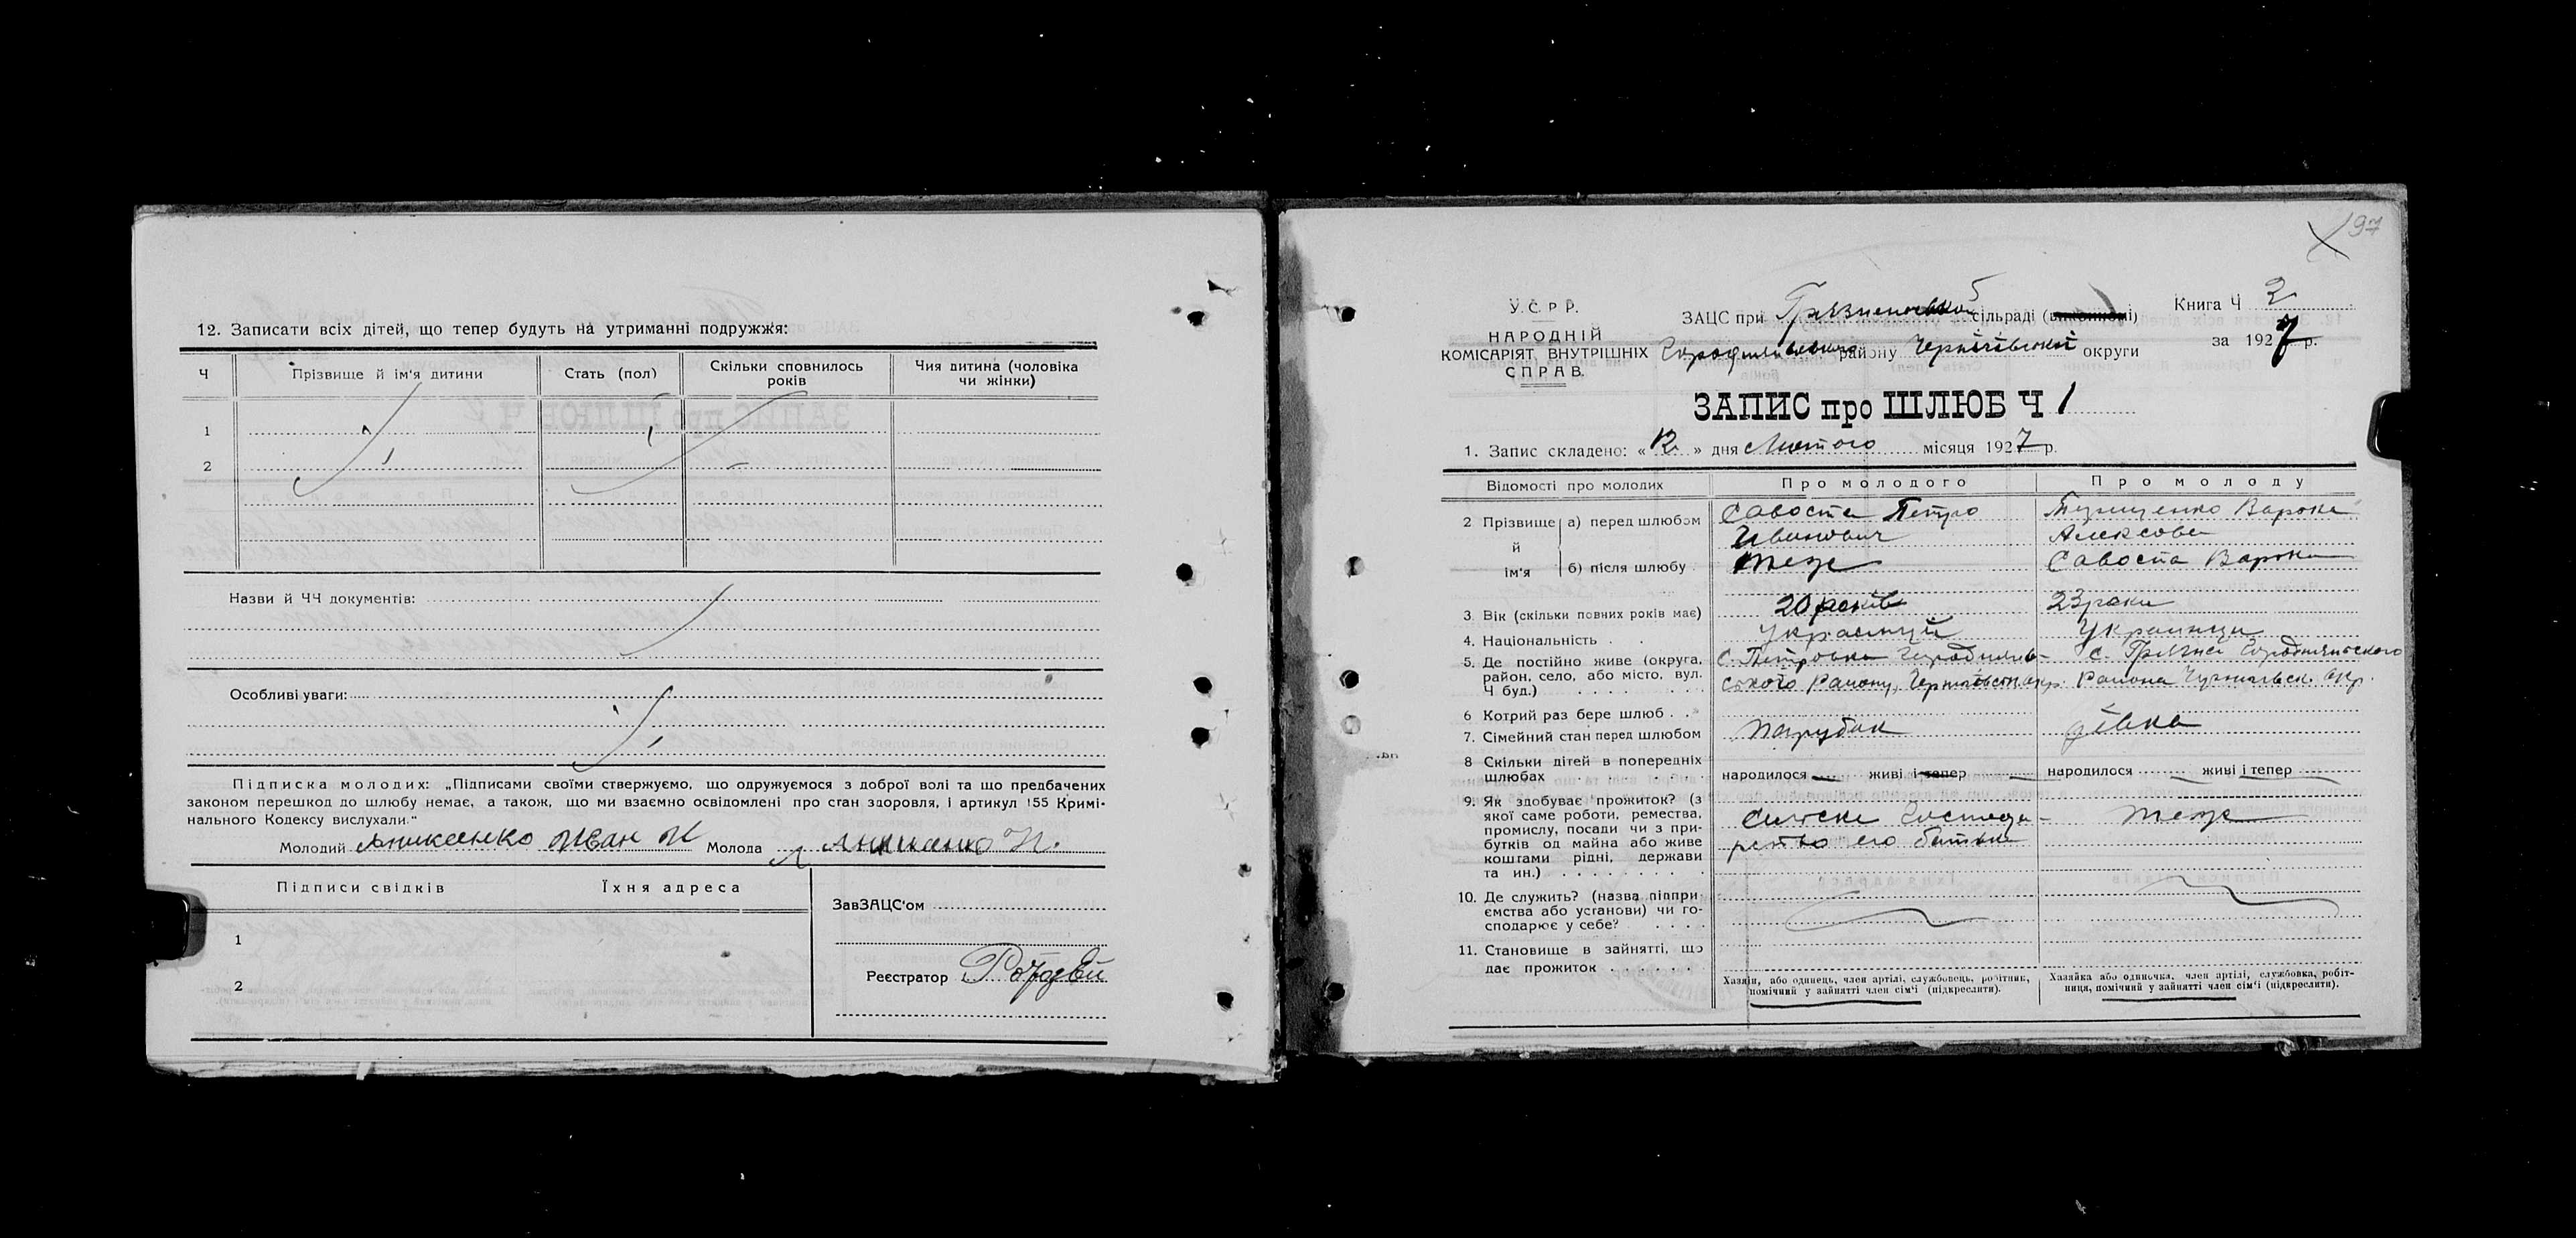 12. Записати всіх дітей, що тепер будуть на утриманні подружжя:
Ч
Прізвище й ім'я дитини
Стать (пол)
Скільки сповнилось років
Чия дитина (чоловіка чи жінки)
1
2
Назви й ЧЧ документів:
Особливі уваги:
Підписка молодих: „Підписами своїми стверджуємо, що одружуємося з доброї волі та що предбачених
законом перешкод до шлюбу немає, а також, що ми взаємно освідомлені про стан здоровля, і артикул 155 Кримі-
нального Кодексу вислухали."
Молодий Аникеенко Иван И Молода
Підписи свідків
Їхня адреса
1
2
ЗавЗАЦС'ом
Реєстратор
197
У.С.Р.Р.
НАРОДНІЙ
КОМІСАРІЯТ ВНУТРІШНІХ
СПРАВ.
ЗАЦС при сільраді
району Чернігівської округи
Книга Ч 2
за 1927 р.
ЗАПИС про ШЛЮБ Ч 1
1. Запис складено: « 12 » дня Лютого місяця 1927 р.
Відомості про молодих
Про молодого
Про молоду
2 Прізвище й ім'я
а) перед шлюбом
Савоста Петро
Иванович
Варока
б) після шлюбу
теж
Савоста Варока
3. Вік (скільки повних років має)
20 років
23 роки
4. Національність
Украинци
5. Де постійно живе (округа,
район, село, або місто, вул.
Ч буд.)
с. Петровка Городнянсь-
ського Району, Чернігівськ. окр.
с. Грязна Городнянского
Района Чернигівск. окр.
6 Котрий раз бере шлюб
7. Сімейний стан перед шлюбом
Парубок
дівка
8 Скільки дітей в попередніх
шлюбах
народилося живі і тепер
народилося живі і тепер
9. Як здобуває прожиток? (з
якої саме роботи, ремества,
промислу, посади чи з при-
бутків од майна або живе
коштами рідні, держави
та ин.)
Сильске Господа-
рство его батька
теж
10. Де служить? (назва піппри-
ємства або установи) чи го-
сподарює у себе?
11. Становище в зайнятті, що
дає прожиток
Хазяїн, або одинець, член артілі, службовець, робітник,
помічний у зайнятті член сім'ї (підкреслити).
Хазяйка або одиночка, член артілі, службовка, робіт-
ниця, помічний у зайнятті член сім'ї (підкреслити).